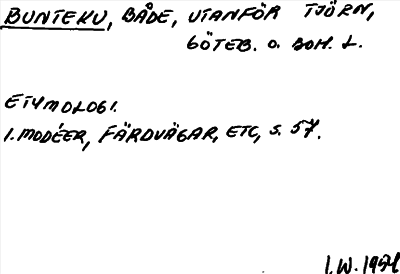 BUNTEKU, BÅDE, UTANFÖR TJÖRN,
GÖTEB. O. BOH. L.
ETYMOLOGI.
I. MODÉER, FÄRDVÄGAR, ETC, S. 57.
I.W. 1954